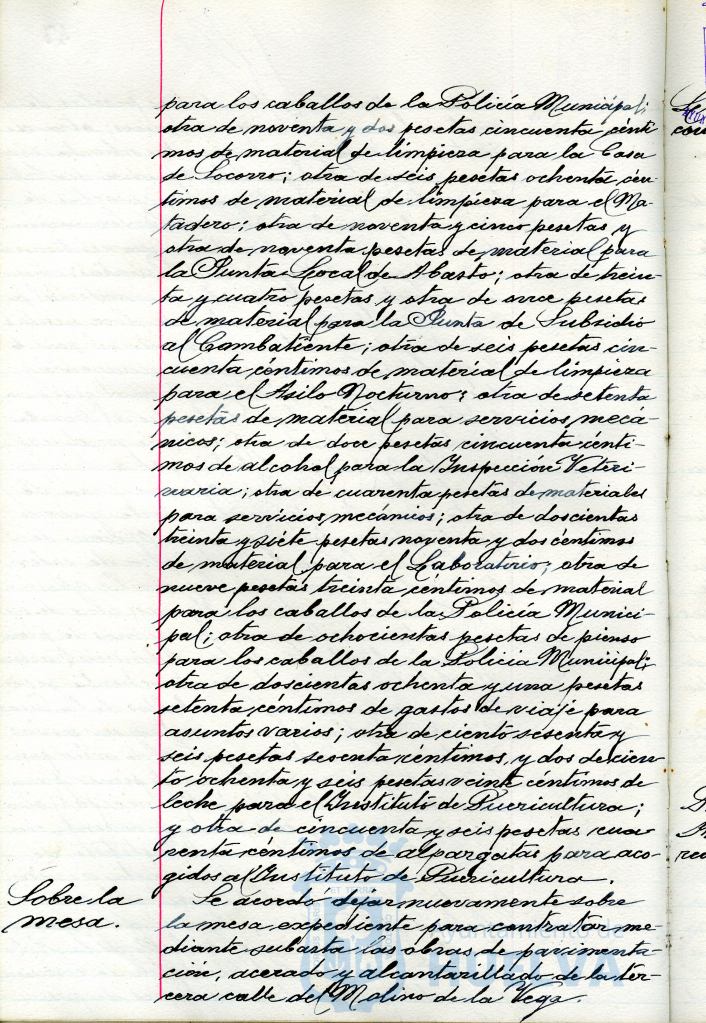 para los caballos de la Policía Municipal;
otra de noventa y dos pesetas cincuenta cénti
mos de material de limpieza para la Casa
de Socorro; otra de séis pesetas ochenta cén-
timos de material de limpieza para el Ma-
tadero; otra de noventa y cinco pesetas y
otra de noventa pesetas de material para
la Junta Local de Abasto; otra de trein-
ta y cuatro pesetas y otra de once pesetas
de material para la Junta de Subsidio
al Combatiente; otra de seis pesetas cin-
cuenta céntimos de material de limpieza
para el Asilo Nocturno; otra de setenta
pesetas de material para servicios mecá-
nicos; otra de doce pesetas cincuenta cénti-
mos de alcohol para la Inspección Veteri-
naria; otra de cuarenta pesetas de materiales
para servicios mecánicos; otra de doscientas
treinta y siéte pesetas noventa y dos céntimos
de material para el Laboratorio; otra de
nueve pesetas treinta céntimos de material
para los caballos de la Policia Munici-
pal; otra de ochocientas pesetas de pienso
para los caballos de la Policia Municipal;
otra de doscientas ochenta y una pesetas
setenta céntimos de gastos de viaje para
asuntos varios; otra de ciento sesenta y
seis pesetas sesenta céntimos, y dos de cien-
to ochenta y seis pesetas veinte céntimos de
leche para el Instituto de Puericultura;
y otra de cincuenta y seis pesetas cua-
renta céntimos de alpargatas para aco-
gidos al Instituto de Puericultura.
Sobre la
mesa.
Se acordo dejar nuevamente sobre
la mesa expediente para contratar me-
diante subasta las obras de pavimenta-
ción, acerado y alcantarillado de la ter-
cera calle del Molino de la Vega.
Ayuntamiento de
HUELVA